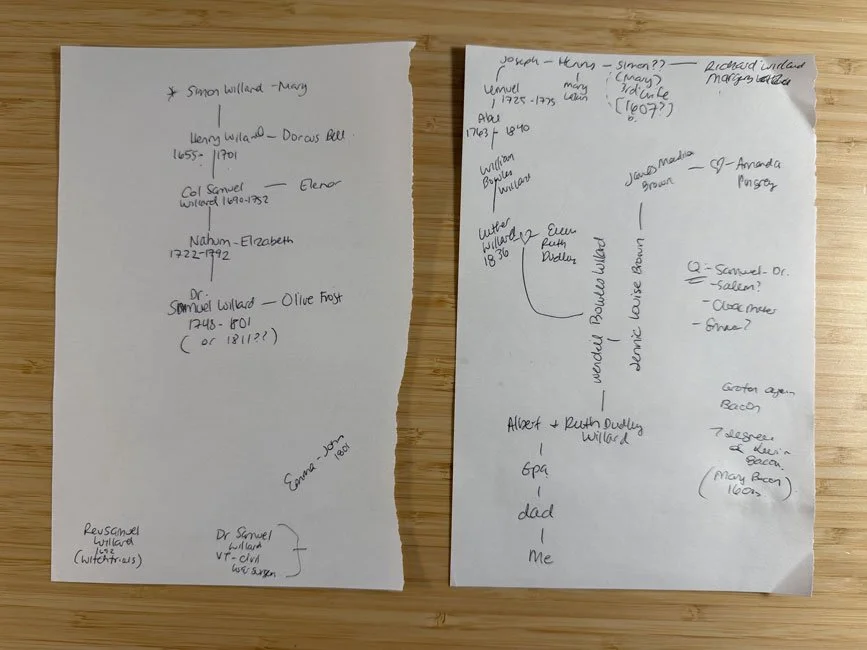 * Simon Willard - Mary
Henry Willard - Dorcus Bell
1655- 1701
Col Samuel - Elenor
Willard 1690-1752
Nahum - Elizabeth
1722-1792
Dr.
Samuel Willard - Olive Frost
1748 - 1801
(or 1811??)
Emma - John
1801
Rev Samuel
Willard
1692
(witchtrials)
Dr Samuel
Willard
VT - civil
war surgeon
Joseph - Henry - Simon?? - Richard Willard
Margery
(Mary?)
3rd wife
[1607?]
Mary
Lemuel
1725-1775
Abel
1763 - 1840
William
Bowles
Willard
Luther
Willard
1836
Ellen
Ruth
Dudley
James
Brown
- Amanda
Pingrey
Wendell Bowles Willard
Jennie Louise Brown
Q: - Samuel - Dr.
- Salem?
- Clock maker
- Emma?
Albert + Ruth Dudley
Willard
Gpa
dad
Me
Groton again
Bacon
7 degrees
of Kevin
Bacon
(Mary Bacon)
1600s